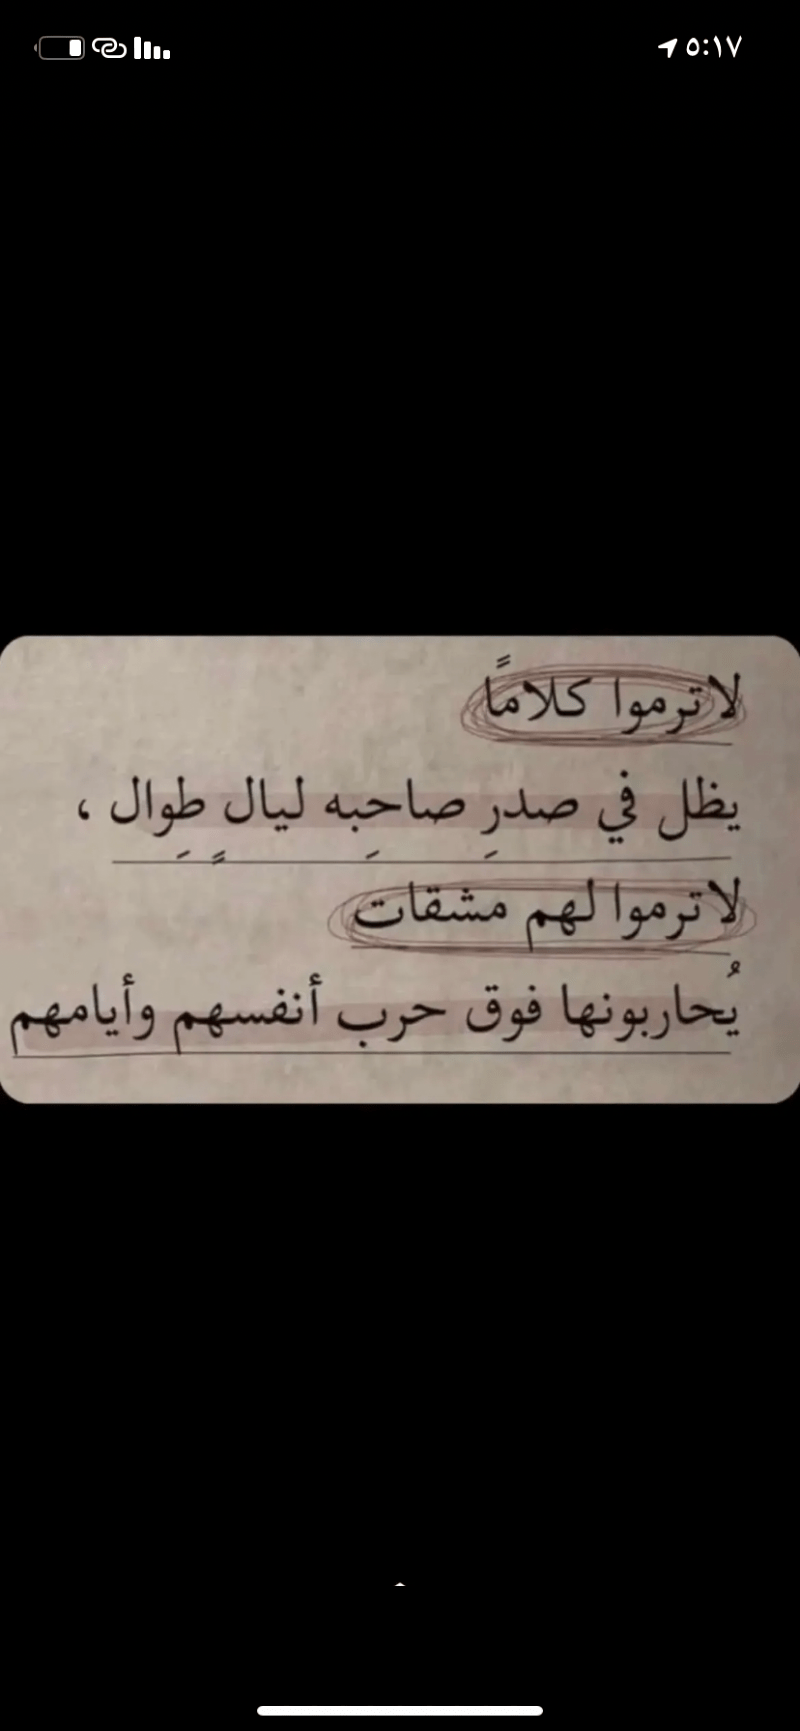 ٥:١٧
لا ترموا كلامًا
يظل في صدرِ صاحِبه ليالٍ طِوال ،
لا ترموا لهم مشقات
يُحاربونها فوق حرب أنفسهم وأيامهم